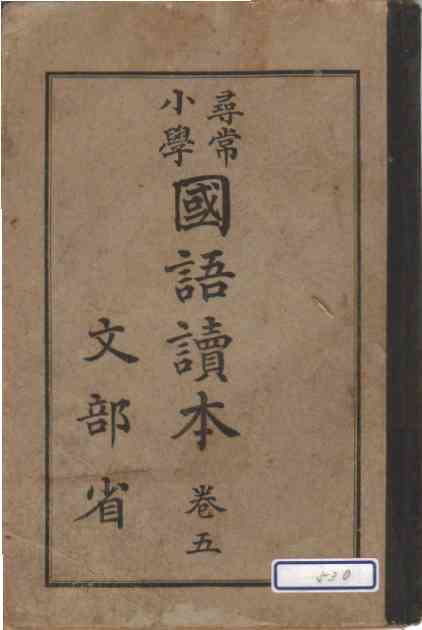 尋常
小學
國語讀本 卷五
文部省
530